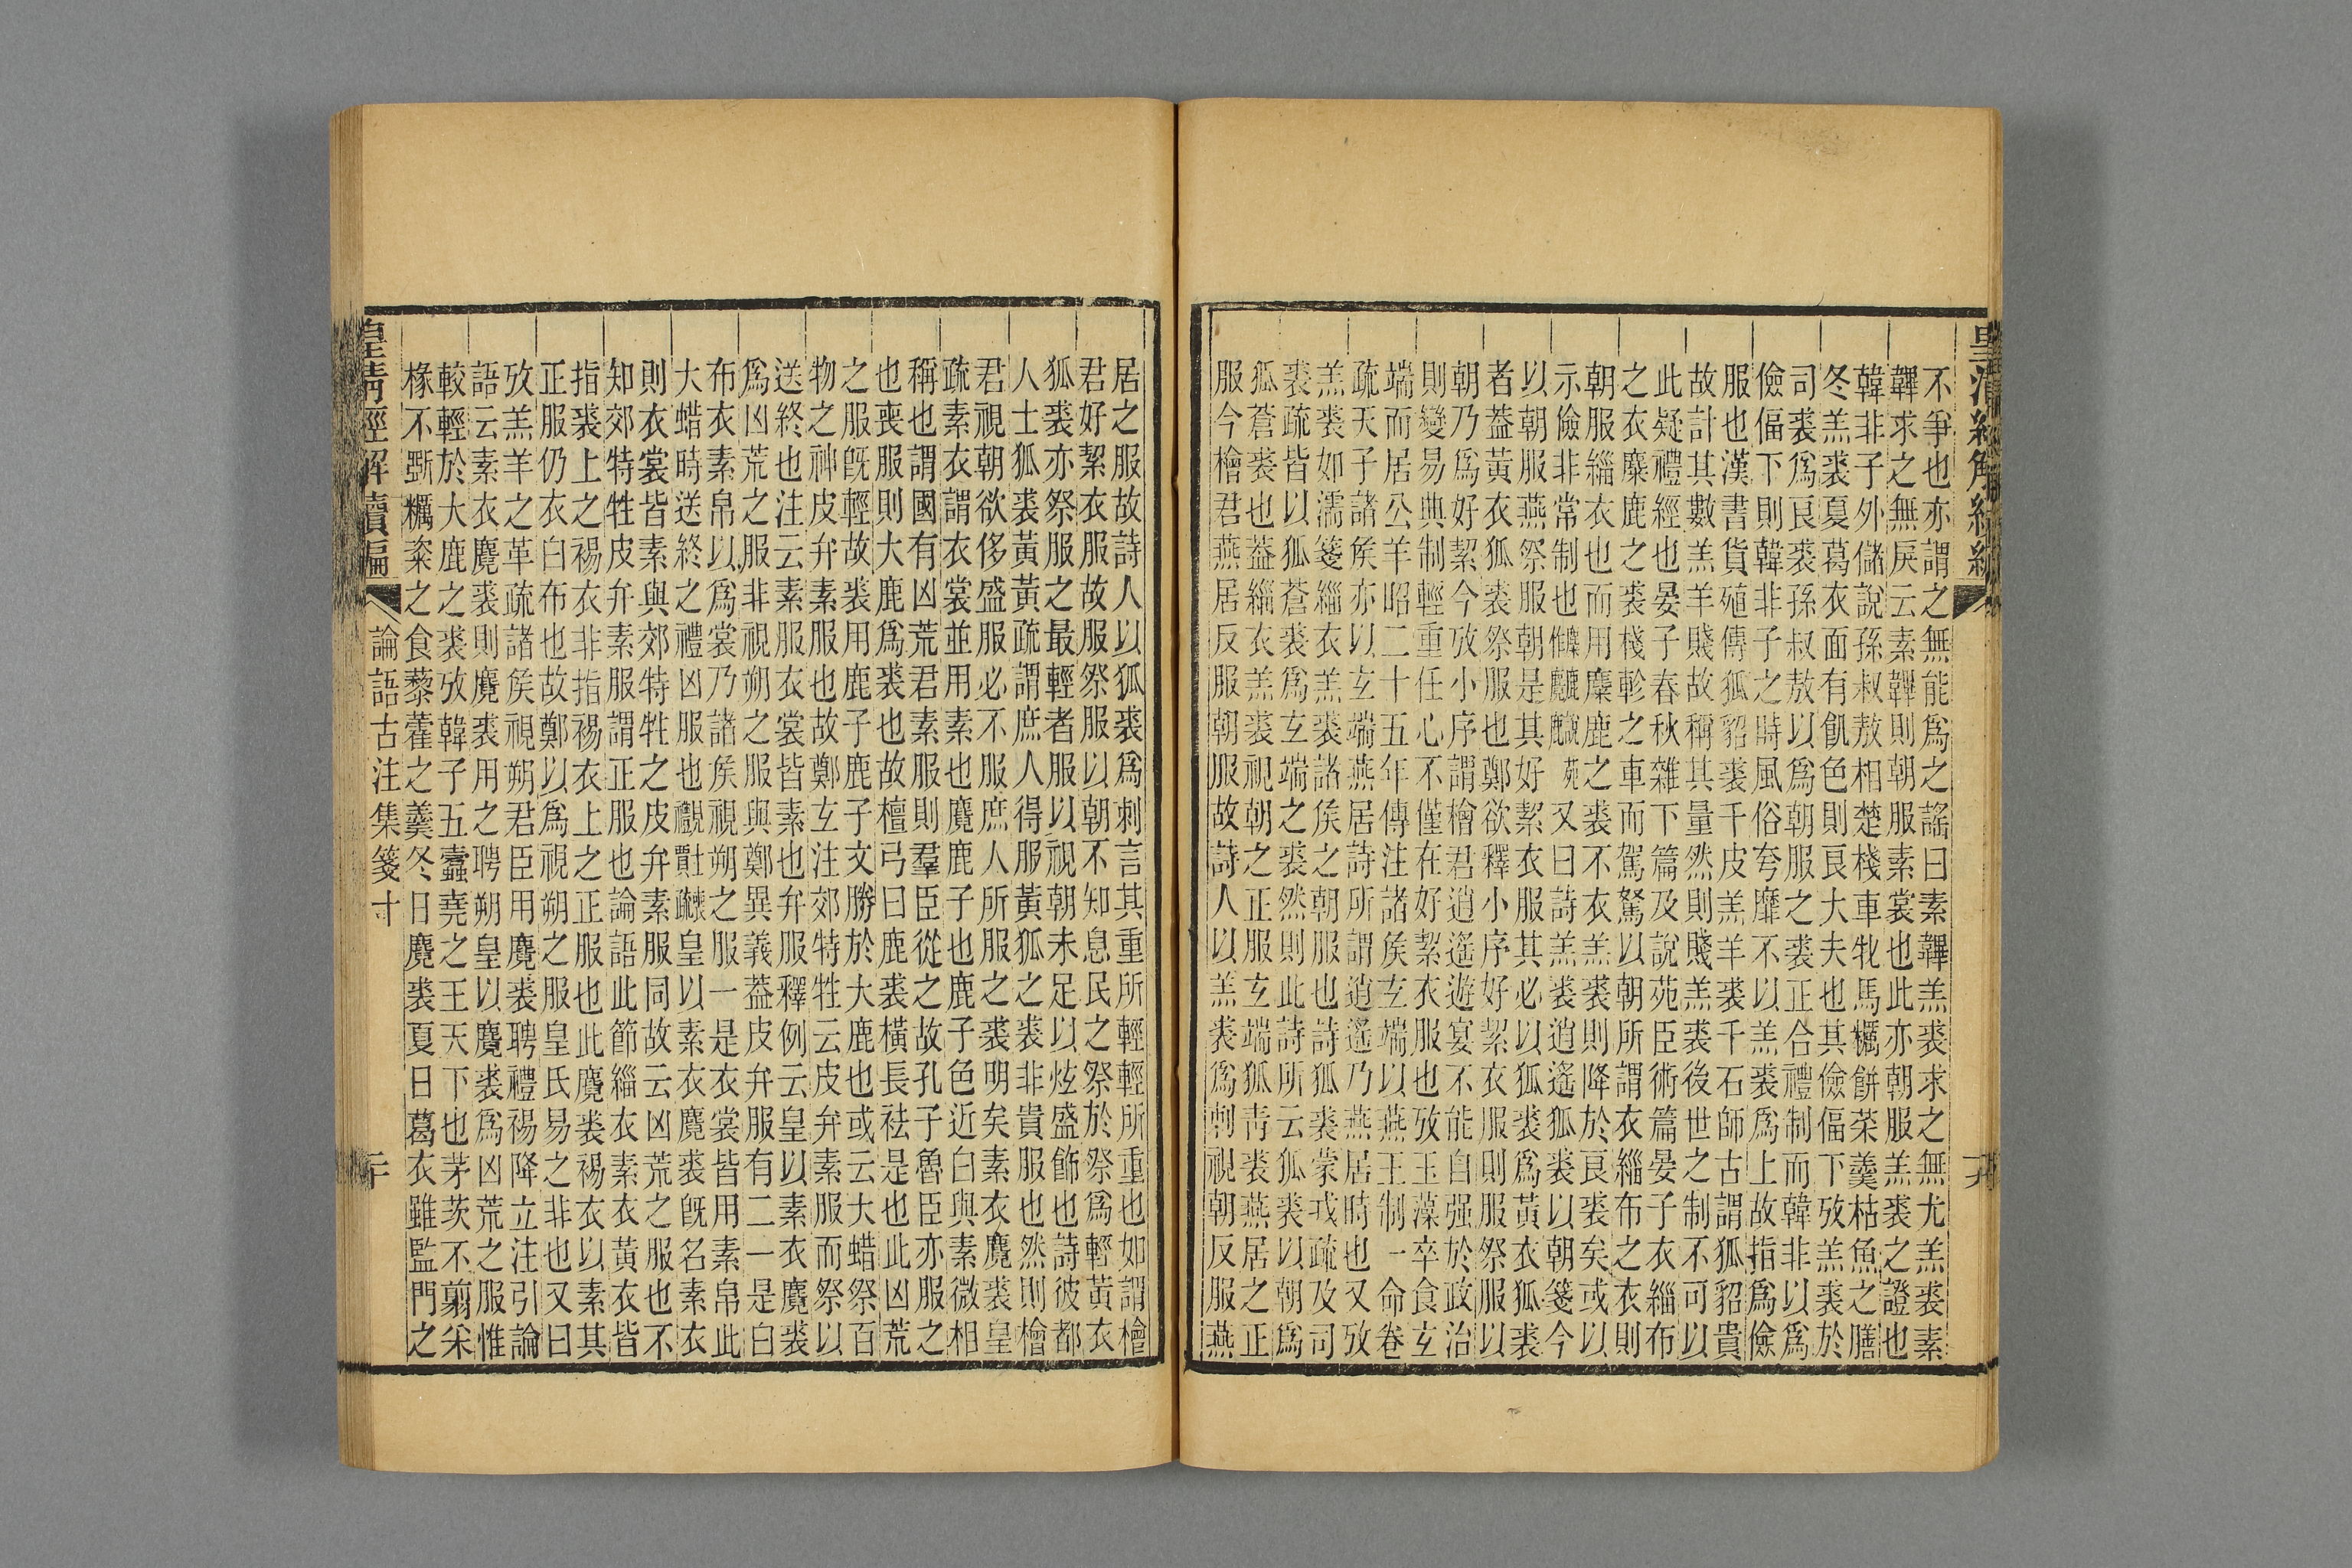 不爭也亦謂之無能爲之謠曰素鞸羔裘求之無尤羔裘素
鞸求之無戾云素鞸則朝服素裳也此亦朝服羔裘之證也
韓非子外儲說孫叔敖相楚棧車牝馬糲餅菜羹枯魚之膳
冬羔裘夏葛衣面有飢色則良大夫也其儉偪下攷羔裘於
司裘爲良裘孫叔敖以爲朝服之裘正合禮制而韓非以爲
儉偪下則韓非子之時風俗夸靡不以羔裘爲上故指爲儉
服也漢書貨殖傳狐貂裘千皮羔羊裘千石師古謂狐貂貴
故計其數羔羊賤故稱其量然則賤羔裘後世之制不可以
此疑禮經也晏子春秋雜下篇及說苑臣術篇晏子衣緇布
之衣麋鹿之裘棧軫之車而駕駑以朝所謂衣緇布之衣則
朝服緇衣也而用麋鹿之裘不衣羔裘則降於良裘矣或以
示儉非常制也又曰詩羔裘逍遙狐裘以朝箋今
以朝服燕祭服朝是其好絜衣服其必以狐裘爲黃衣狐裘
者蓋黃衣狐裘祭服也鄭欲釋小序好絜衣服則服祭服以
朝乃爲好絜今攷小序謂檜君逍遙遊宴不能自强於政治
則變易典制輕重任心不僅在好絜衣服也攷玉藻卒食玄
端而居公羊昭二十五年傳注諸矦玄端以燕王制一命卷
疏天子諸矦亦以玄端燕居詩所謂逍遙乃燕居時也又攷
羔裘如濡箋緇衣羔裘諸矦之朝服也詩狐裘蒙戎疏及司
裘疏皆以狐蒼裘爲玄端之裘然則此詩所云狐裘以朝爲
狐蒼裘也蓋緇衣羔裘視朝之正服玄端狐靑裘燕居之正
服今檜君燕居反服朝服故詩人以羔裘爲刺視朝反服燕
居之服故詩人以狐裘爲刺言其重所輕輕所重也如謂檜
君好絜衣服故服祭服以朝不知息民之祭於祭爲輕黃衣
狐裘亦祭服之最輕者服以視朝未足以炫盛飾也詩彼都
人士狐裘黃黃疏謂庶人得服黃狐之裘非貴服也然則檜
君視朝欲侈盛服必不服庶人所服之裘明矣素衣麑裘皇
疏素衣謂衣裳並用素也麑鹿子也鹿子色近白與素微相
稱也謂國有凶荒君素服則羣臣從之故孔子魯臣亦服之
也喪服則大鹿爲裘也故檀弓曰鹿裘橫長袪是也此凶荒
之服旣輕故裘用鹿子鹿子文勝於大鹿也或云大蜡祭百
物之神皮弁素服也故鄭玄注郊特牲云皮弁素服而祭以
送終也注云素服衣裳皆素也弁服釋例云皇以素衣麑裘
爲凶荒之服非視朔之服與鄭異義蓋皮弁服有二一是白
布衣素帛以爲裳乃諸矦視朔之服一是衣裳皆用素帛此
大蜡時送終之禮凶服也皇以素衣麑裘旣名素衣
則衣裳皆素與郊特牲之皮弁素服同故云凶荒之服也不
知郊特牲皮弁素服謂正服也論語此節緇衣素衣黃衣皆
指裘上之裼衣非指裼衣上之正服也此麑裘裼衣以素其
正服仍衣白布也故鄭以爲視朔之服皇氏易之非也又曰
攷羔羊之革疏諸矦視朔君臣用麑裘聘禮裼降立注引論
語云素衣麑裘則麑裘用之聘朔皇以麑裘爲凶荒之服惟
較輕於大鹿之裘攷韓子五蠹堯之王天下也茅茨不翦采
椽不斲糲粢之食藜藿之羹冬日麑裘夏日葛衣雖監門之
皇淸經解續編
論語古注集箋十